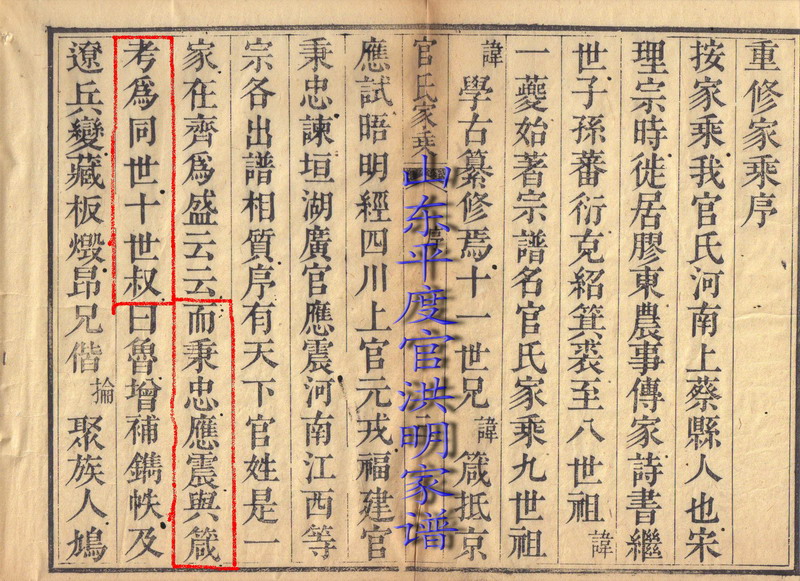 重修家乘序
按家乘我官氏河南上蔡縣人也宋
理宗時徙居膠東農事傳家詩書繼
世子孫蕃衍克紹箕裘至八世祖諱
一夔始著宗譜名官氏家乘九世祖
諱學古纂修焉十一世兄諱箴抵京
官氏家乘
山东平度官洪明家谱
應試晤明經四川上官元戎福建官
秉忠諫垣湖廣官應震河南江西等
宗各出譜相質序有天下官姓是一
家在齊爲盛云云而秉忠應震與箴
考爲同世十世叔曰魯增補鐫帙及
遼兵變藏板燬昂兄偕掄聚族人鳩